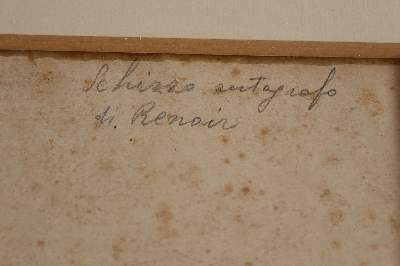 Schizzo autografo
di Renoir